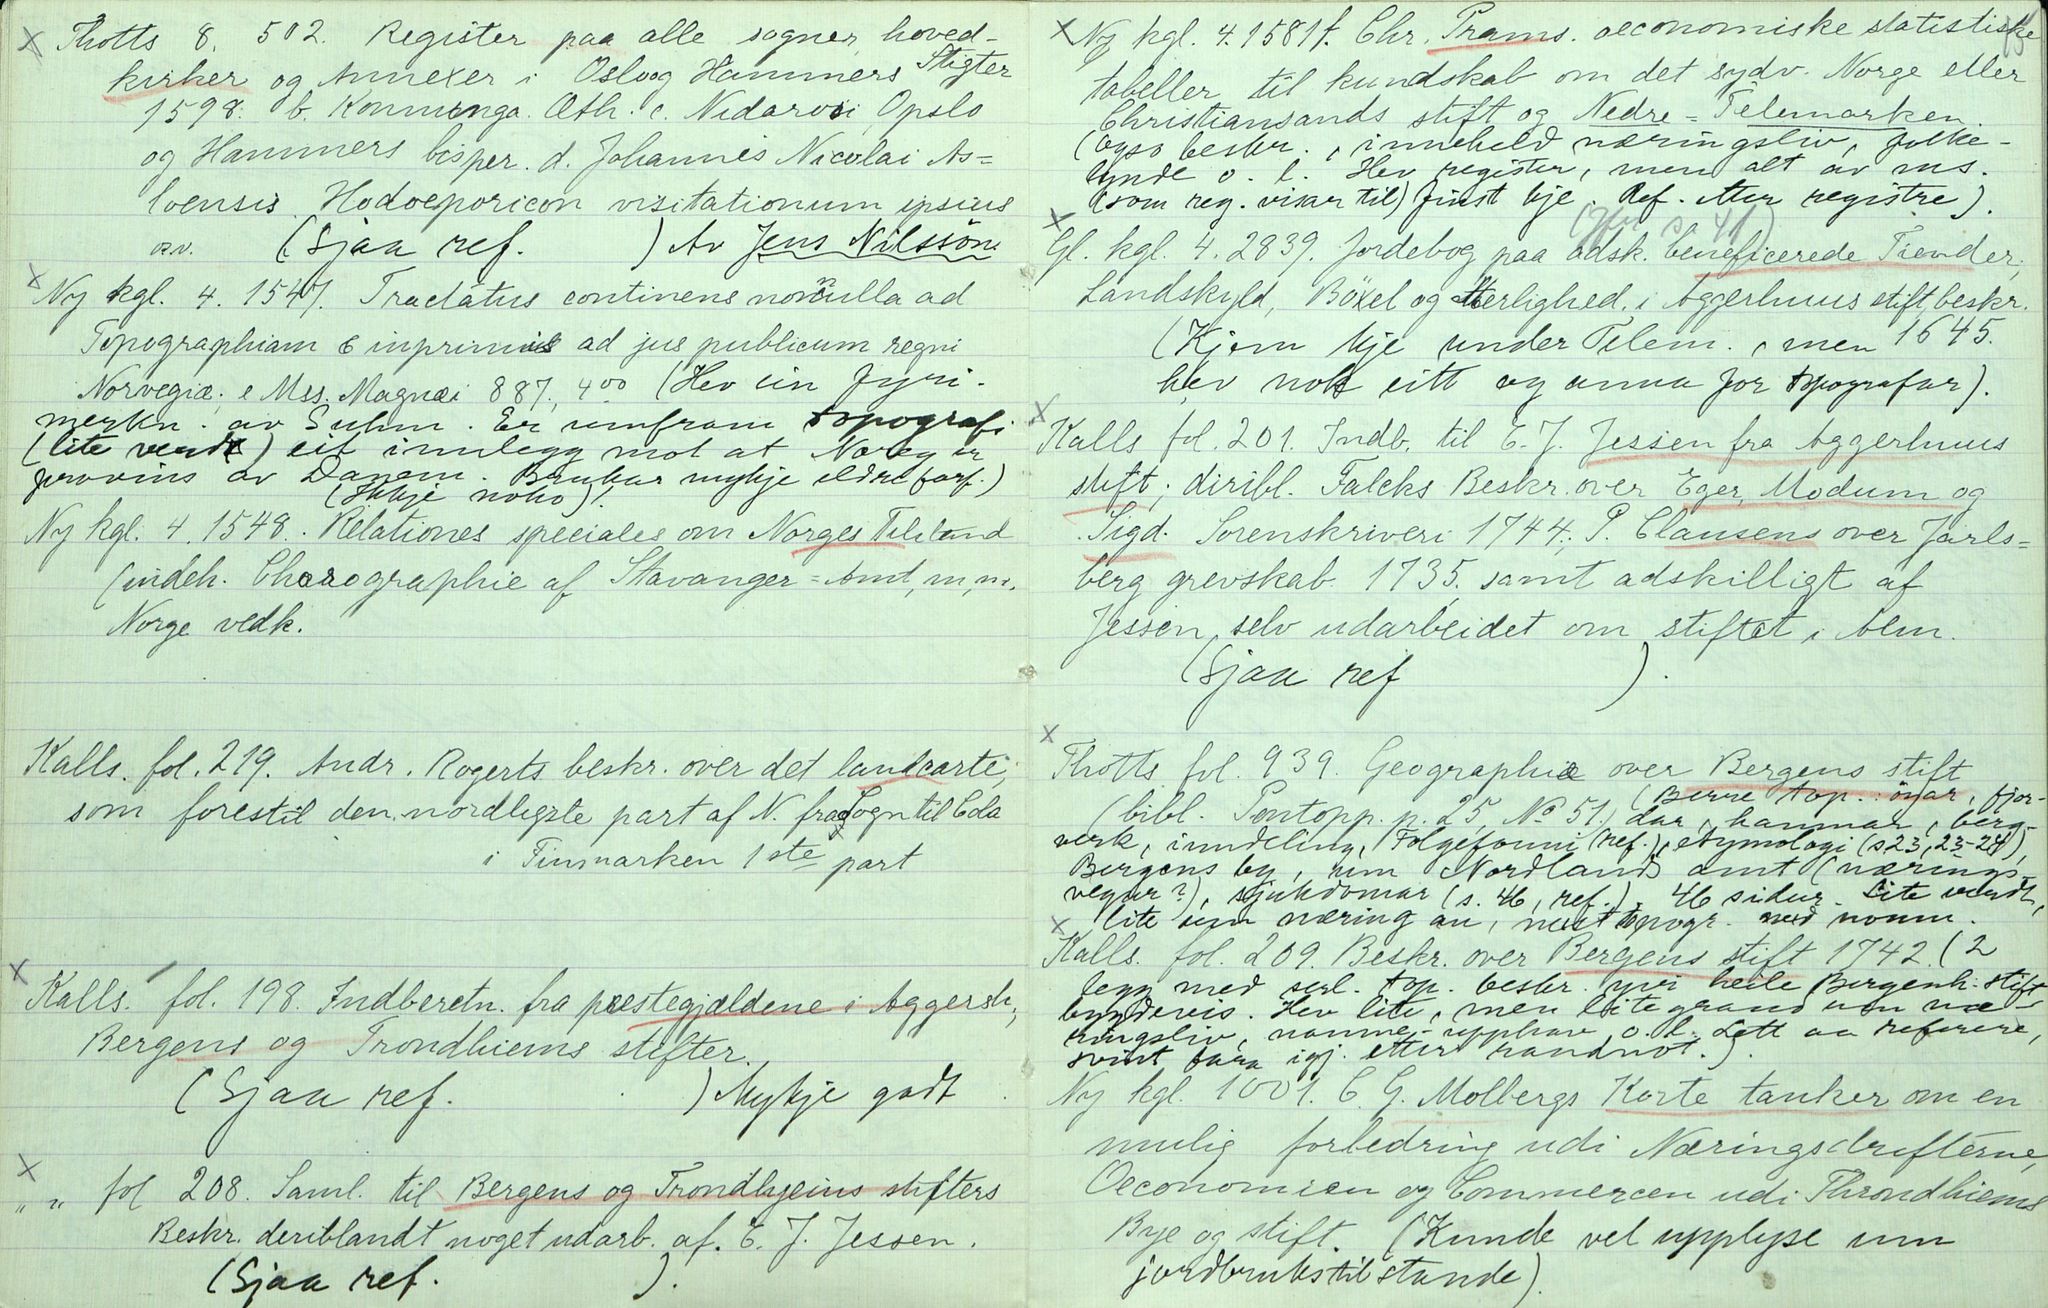 x Thotts 8. 502. Register paa alle sogner, hoved-
kirker og Annexer i Oslo og Hammers Stigter
1598. b. Konnunga Æth. c. Nidarosi, Opslo
og Hammers bisper. d. Johannis Nicolai As-
loensis Hodoeporicon visitationum ipsius
o.v. (Sjaa ref. ) Av Jens Nilssøn
x Ny kgl. 4. 1547. Tractatus continens nonnulla ad
Topographiam & inprimis ad jus publicum regni
Norvegiæ; e Mss. Magnæi 887, 4to (Hev ein fyri-
merkn. av Suhm. Er umfram topografi
(lite verdt) eit innlegg mot at Noreg er
provins av Danem. Brukar mykje eldre forf.)
(Ikkje noko)!
Ny kgl. 4. 1548. Relationes speciales om Norges Tilstand
(indeh. Chorographie af Stavanger-Amt, m, m.
Norge vedk.
Kalls. fol. 219. Andr. Rogerts beskr. over det landcarte,
som forestil den nordligste part af N. fra Sogn til Cola
i Finmarken 1ste part
x Kalls. fol. 198. Indberetn. fra prestegjældene i Aggersh,
Bergens og Trondhiems stifter.
(Sjaa ref. ) Mykje godt
x " " fol 208. Saml. til Bergens og Trondhjeims stifters
Beskr. deriblandt noget udarb. af. E. J. Jessen.
(Sjaa ref. ).
x Ny kgl. 4. 1581f. Chr. Prams. oeconomiske statistiske
tabeller til kundskab om det sydv. Norge eller
Christiansands stift og Nedre-Telemarken.
(Ogso beskr., inneheld næringsliv, folke-
lynde o. l. Hev register, men alt av ms.
(som reg. viser til) finst kje. Ref. etter registre).
(Jfr s. 41)
x Gl. kgl. 4. 2839. Jordebog paa adsk. beneficerede Tiender,
Landskyld, Böxel og Herlighed, i Aggerhuus stift, beskr.
1645.
(Kjem kje under Telem., men
hev nok eitt og anna for topografar).
x Kalls fol. 201. Indb. til E. J. Jessen fra Aggerhuus
stift; diribl. Falcks Beskr. over Eger, Modum og
Sigd. Sorenskriveri 1744; P. Clausens over Jarls-
berg grevskab 1735, samt adskilligt af
Jessen selv udarbeidet om stiftet i Alm.
(Sjaa ref ).
x Thotts fol. 939. Geographie over Bergens stift
(bibl. Pontopp. p. 25, No 51.) (Berre top.: öyar, fjor-
dar, hamnar, berg-
verk, inndeling, Folgefonni (ref.), etymologi (s 23, 23-24),
Bergens by, um Nordlands amt (nærings-
vegar?), sjukdomar (s. 46, ref.). 46 sidur. Lite verdt,
lite um næring au, mest topogr. med namn.
x Kalls. fol. 209. Beskr. over Bergens stift 1742. (2
legg med serl. top. beskr. yvi heile Bergenh. stift
bygdevis. Hev lite, men litegrand um næ-
ringsliv, namne-upphav o. l. Lett aa referere,
svint fara igj. etter randnot.).
Ny kgl. 1001. C. G. Molbergs Korte tanker om en
mulig forbedring udi Næringsdrifterne,
Oeconomien og Commercen udi Throndhiems
Bye og stift. (Kunde vel upplyse um
jordbrukstilstande).